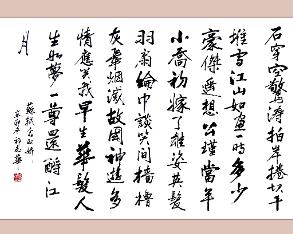 石穿空驚濤拍岸捲起千
堆雪江山如畫一時多少
豪傑遙想公瑾當年
小喬初嫁了雄姿英發
羽扇綸巾談笑間檣櫓
灰飛烟滅故國神遊多
情應笑我早生華髮人
生如夢一尊還酹江
月
蘇軾念奴嬌